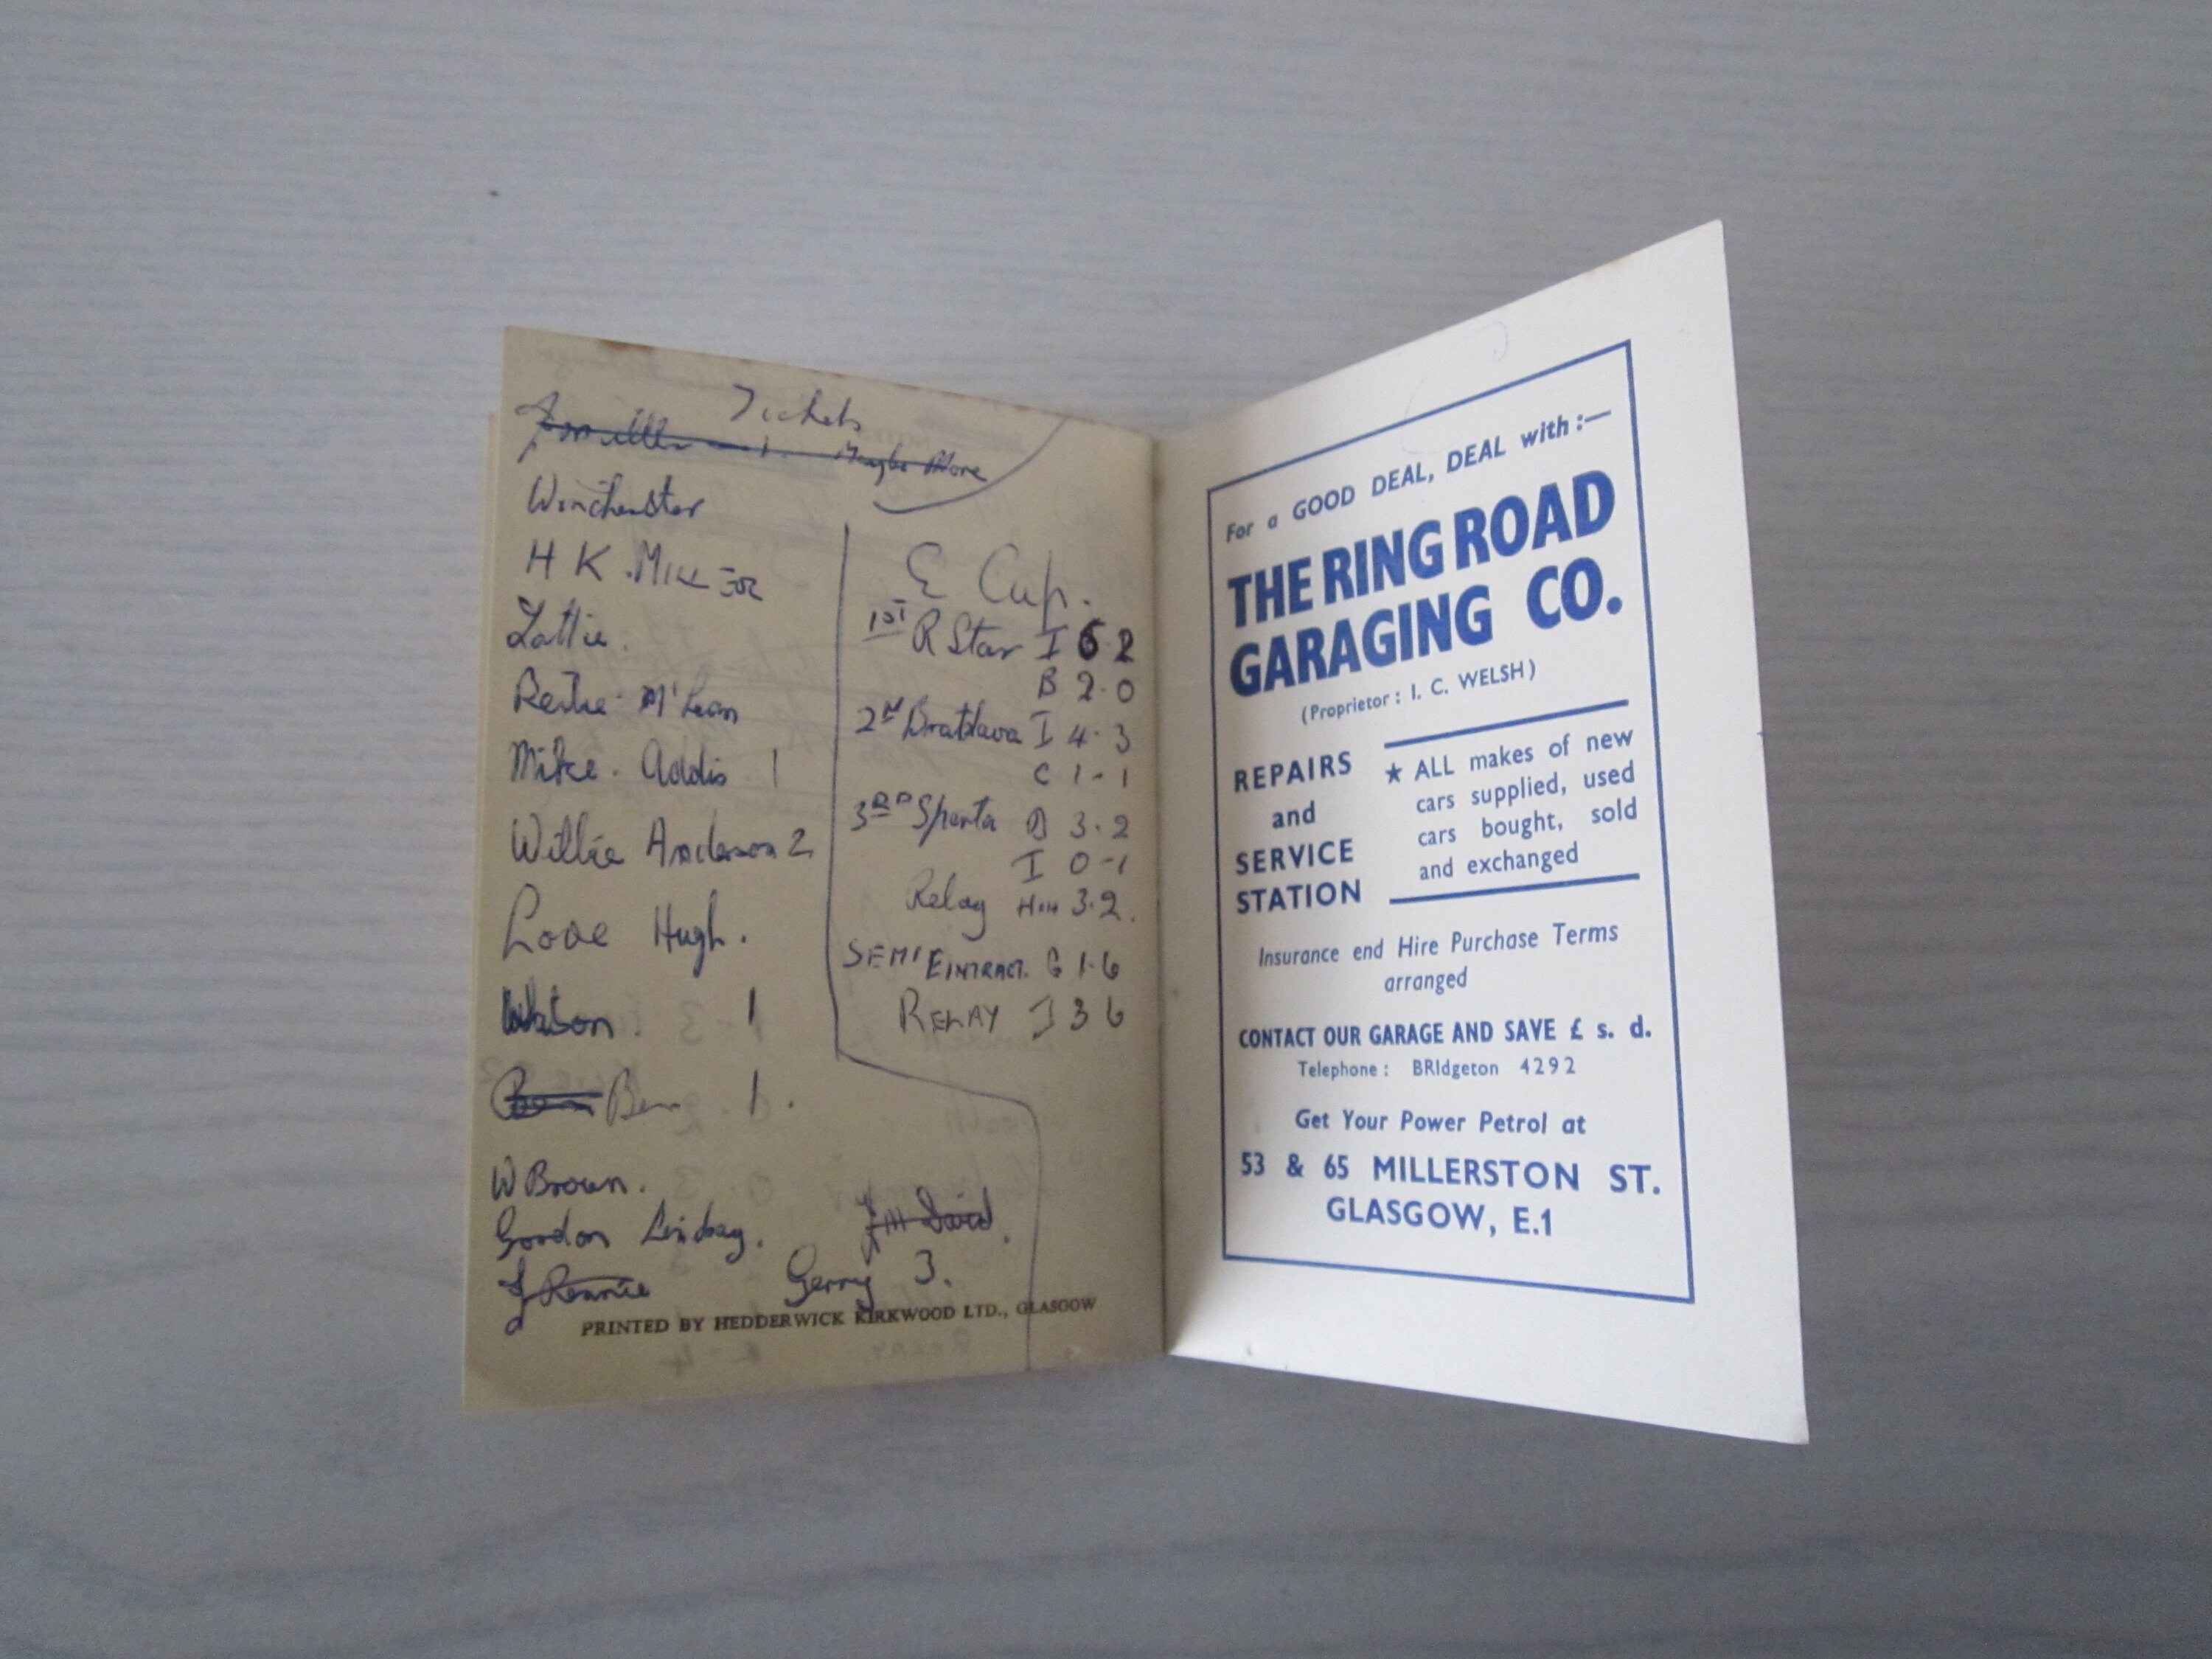 Tickets
1. Maybe More
Winchester
H K. MILLER
Lattie.
Reilie M'Lean
Mike. Addis 1
Willie Anderson 2
Love Hugh.
Watson. 1
Ben 1.
W Brown.
Gordon Lindsay.
J Rennie
Jim David.
Gerry 3.
E Cup.
1ST R Star I 5 2
B 2.0
2N Bratslava I 4.3
C 1-1
3RD Sparta A 3.2
I 0-1
Relay 3.2.
SEMI EINTRACT. G 1.6
RELAY I 3 6
PRINTED BY HEDDERWICK KIRKWOOD LTD., GLASGOW
For a GOOD DEAL, DEAL with :—
THE RING ROAD
GARAGING CO.
(Proprietor : I. C. WELSH)
REPAIRS
and
SERVICE
STATION
★ ALL makes of new
cars supplied, used
cars bought, sold
and exchanged
Insurance end Hire Purchase Terms
arranged
CONTACT OUR GARAGE AND SAVE £ s. d.
Telephone : BRIdgeton 4292
Get Your Power Petrol at
53 & 65 MILLERSTON ST.
GLASGOW, E.1